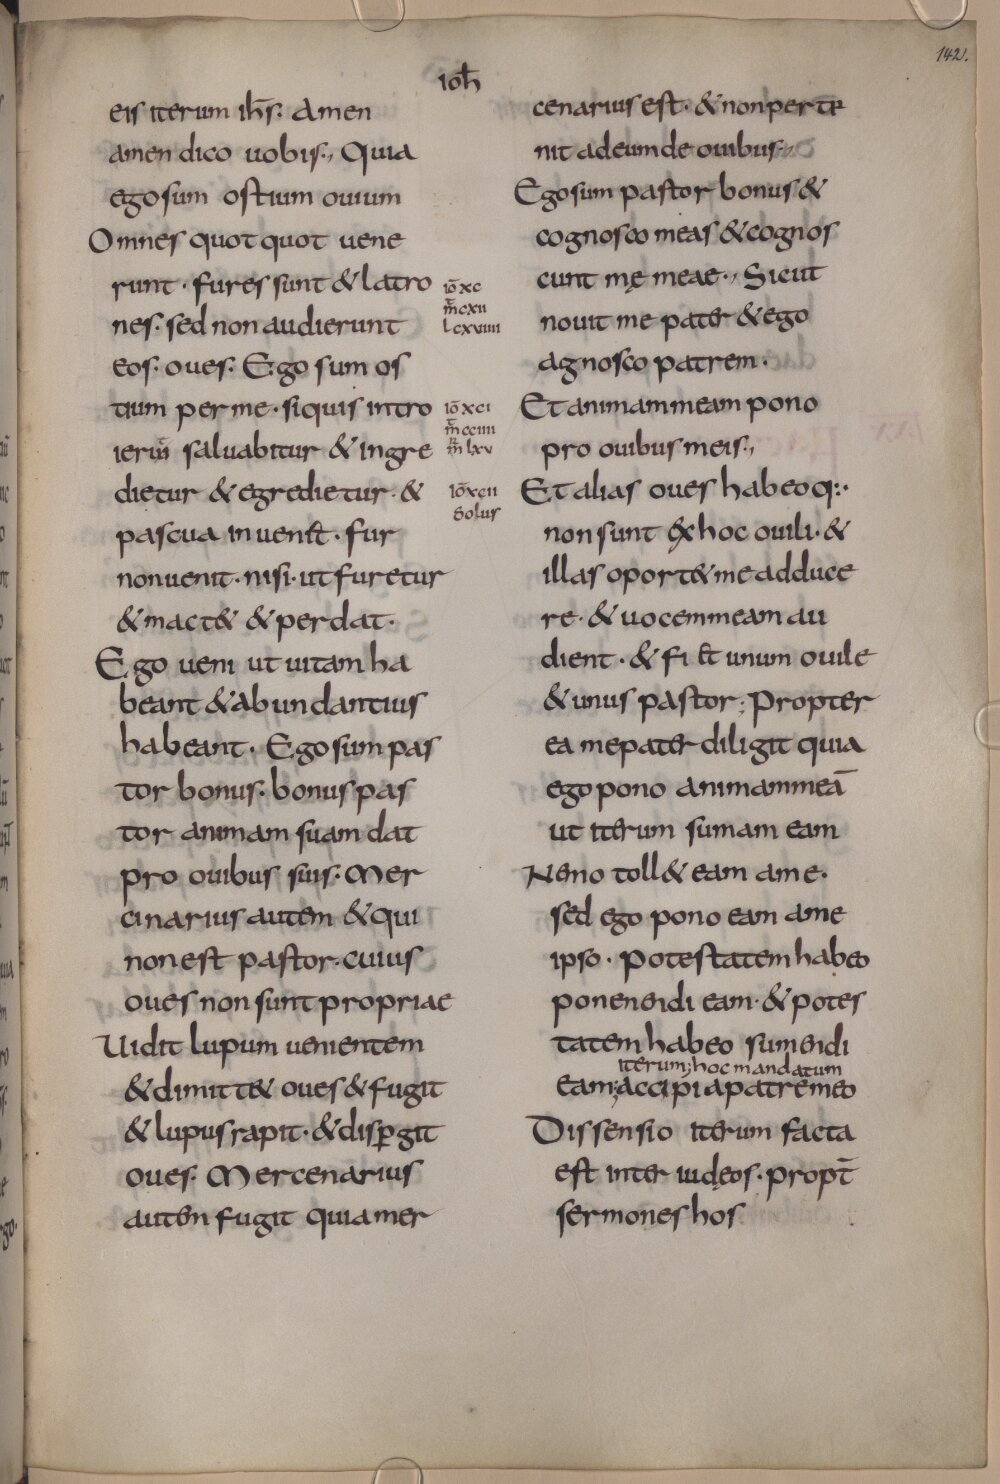 142.
ioħ
eis iterum ihs̄. Amen
amen dico uobis., Quia
ego sum ostium ouium
Omnes quot quot uene
runt. fures sunt & latro
nes. sed non audierunt
eos. oues. Ego sum os
tium per me. siquis intro
ierit saluabitur & ingre
dietur & egredietur. &
pascua inueniet. fur
non uenit. nisi. ut furetur
& mact& & perdat.
Ego ueni ut uitam ha
beant & abundantius
habeant. Ego sum pas
tor bonus. bonus pas
tor animam suam dat
pro ouibus suis. Mer
cinarius autem & qui
non est pastor. cuius
oues non sunt propriae
Uidit lupum uenientem
& dimitt& oues & fugit
& lupus rapit. & disꝑgit
oues. Mercenarius
autem fugit quia mer
iō xc
m̄ cxii
l cxuiiii
iō xci
m̄ cciiii
m̄r lxv
iō xcii
Solus
cenarius est. & non perte
nit ad eum de ouibus.,
Ego sum pastor bonus &
cognosco meas & cognos
cunt mę meae., Sicut
nouit me pater & ego
agnosco patrem.
Et animam meam pono
pro ouibus meis.,
Et alias oues habeo q:.
non sunt ex hoc ouili. &
illas oport& me adduce
re. & uocem meam au
dient. & fiet unum ouile
& unus pastor; Propter
ea me pater diligit quia
ego pono animam meā
ut iterum sumam eam
Nemo toll& eam a me.
sed ego pono eam a me
ipso. Potestatem habeo
ponendi eam. & potes
tatem habeo sumendi
iterum; hoc mandatum
eam; accipi a patre meo
Dissensio iterum facta
est inter iudęos. propt̄
sermones hos